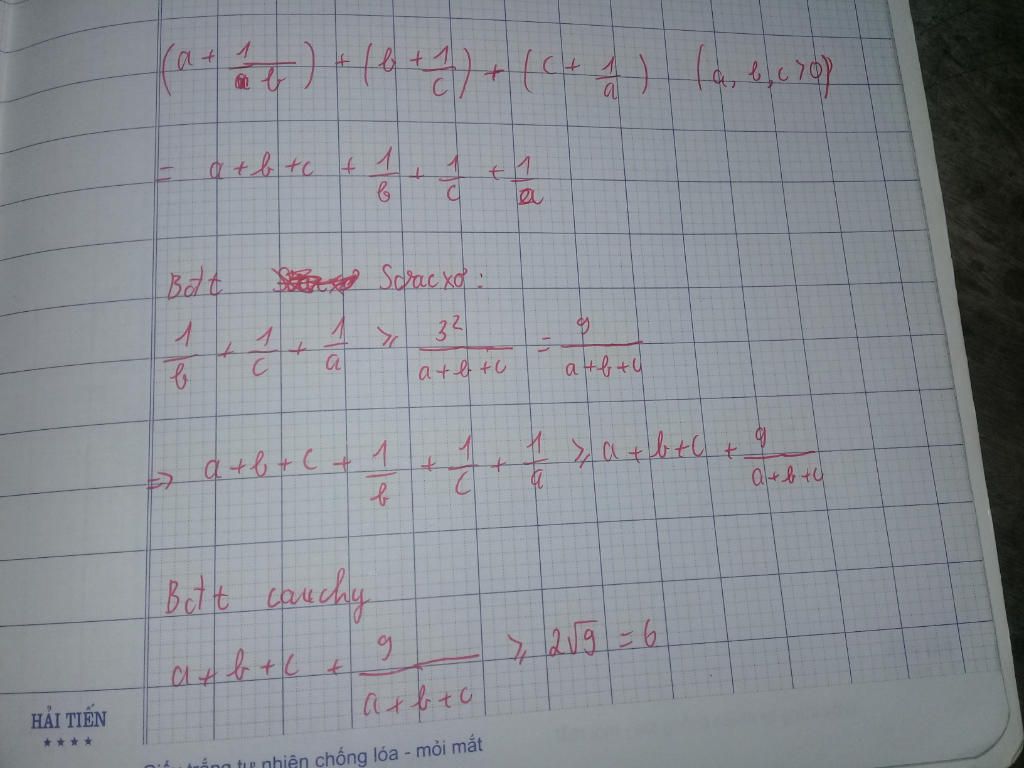 (a + 1/b) + (b + 1/c) + (c + 1/a) (a, b, c > 0)
= a + b + c + 1/b + 1/c + 1/a
Bđt Svacxơ:
1/b + 1/c + 1/a ≥ 3²/(a+b+c) = 9/(a+b+c)
=> a + b + c + 1/b + 1/c + 1/a ≥ a + b + c + 9/(a+b+c)
Bđt cauchy
a + b + c + 9/(a+b+c) ≥ 2√9 = 6
HẢI TIẾN
★★★★
trắng tự nhiên chống lóa - mỏi mắt